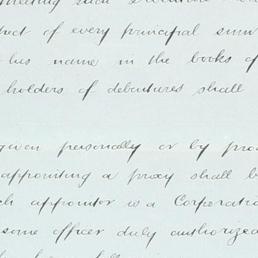 meeting such
of every principal sum
his name in the books of
holders of debentures shall
given personally or by
appointing a proxy shall
appointor is a Corporation
some officer duly authorized